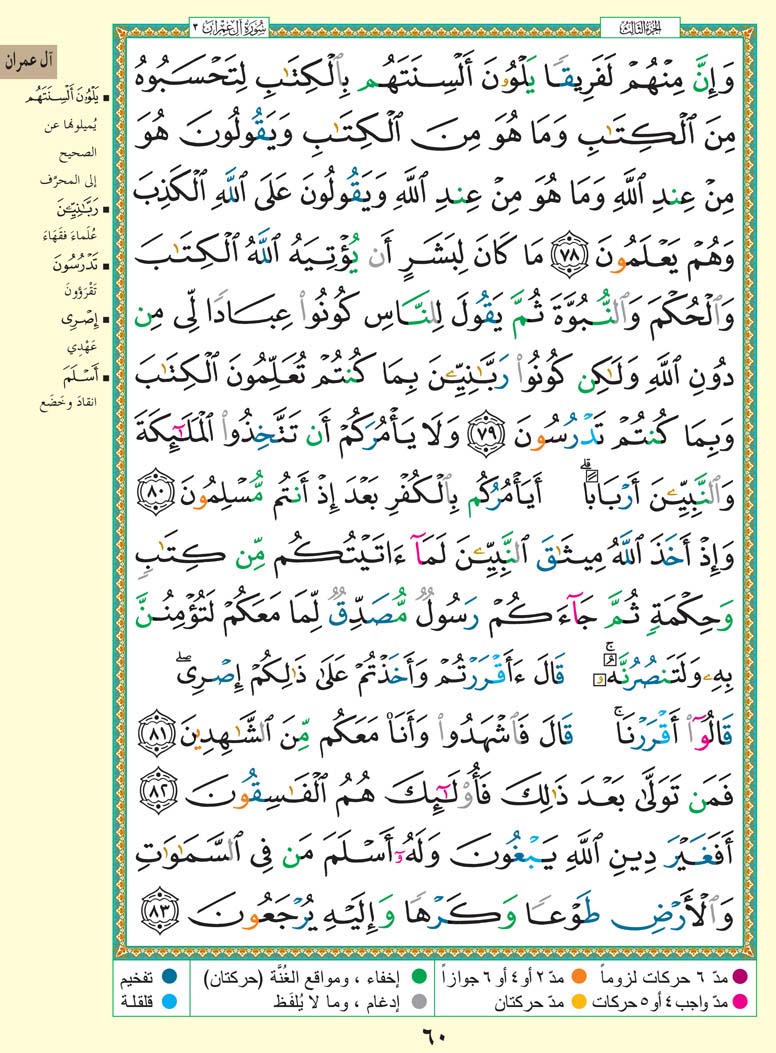 الجزء الثالث
سورة آل عمران ٣
وَإِنَّ مِنْهُمْ لَفَرِيقًا يَلْوُۥنَ أَلْسِنَتَهُم بِٱلْكِتَٰبِ لِتَحْسَبُوهُ
مِنَ ٱلْكِتَٰبِ وَمَا هُوَ مِنَ ٱلْكِتَٰبِ وَيَقُولُونَ هُوَ
مِنْ عِندِ ٱللَّهِ وَمَا هُوَ مِنْ عِندِ ٱللَّهِ وَيَقُولُونَ عَلَى ٱللَّهِ ٱلْكَذِبَ
وَهُمْ يَعْلَمُونَ ٧٨ مَا كَانَ لِبَشَرٍ أَن يُؤْتِيَهُ ٱللَّهُ ٱلْكِتَٰبَ
وَٱلْحُكْمَ وَٱلنُّبُوَّةَ ثُمَّ يَقُولَ لِلنَّاسِ كُونُوا۟ عِبَادًا لِّى مِن
دُونِ ٱللَّهِ وَلَٰكِن كُونُوا۟ رَبَّٰنِيِّۦنَ بِمَا كُنتُمْ تُعَلِّمُونَ ٱلْكِتَٰبَ
وَبِمَا كُنتُمْ تَدْرُسُونَ ٧٩ وَلَا يَأْمُرَكُمْ أَن تَتَّخِذُوا۟ ٱلْمَلَٰٓئِكَةَ
وَٱلنَّبِيِّۦنَ أَرْبَابًا ۗ أَيَأْمُرُكُم بِٱلْكُفْرِ بَعْدَ إِذْ أَنتُم مُّسْلِمُونَ ٨٠
وَإِذْ أَخَذَ ٱللَّهُ مِيثَٰقَ ٱلنَّبِيِّۦنَ لَمَآ ءَاتَيْتُكُم مِّن كِتَٰبٍ
وَحِكْمَةٍ ثُمَّ جَآءَكُمْ رَسُولٌ مُّصَدِّقٌ لِّمَا مَعَكُمْ لَتُؤْمِنُنَّ
بِهِۦ وَلَتَنصُرُنَّهُۥ ۚ قَالَ ءَأَقْرَرْتُمْ وَأَخَذْتُمْ عَلَىٰ ذَٰلِكُمْ إِصْرِى ۖ
قَالُوٓا۟ أَقْرَرْنَا ۚ قَالَ فَٱشْهَدُوا۟ وَأَنَا۠ مَعَكُم مِّنَ ٱلشَّٰهِدِينَ ٨١
فَمَن تَوَلَّىٰ بَعْدَ ذَٰلِكَ فَأُو۟لَٰٓئِكَ هُمُ ٱلْفَٰسِقُونَ ٨٢
أَفَغَيْرَ دِينِ ٱللَّهِ يَبْغُونَ وَلَهُۥٓ أَسْلَمَ مَن فِى ٱلسَّمَٰوَٰتِ
وَٱلْأَرْضِ طَوْعًا وَكَرْهًا وَإِلَيْهِ يُرْجَعُونَ ٨٣
آل عمران
▪ يَلْوُۥنَ أَلْسِنَتَهُم
يُميلونها عن
الصحيح
إلى المحرَّف
▪ رَبَّٰنِيِّۦنَ
عُلَماءَ فُقَهَاءَ
▪ تَدْرُسُونَ
تَقْرَؤونَ
▪ إِصْرِى
عَهْدِي
▪ أَسْلَمَ
انقادَ وخَضَع
مدّ ٦ حركات لزوماً
مدّ ٢ أو ٤ أو ٦ جوازاً
إخفاء ، ومواقع الغُنَّة (حركتان)
تفخيم
مدّ واجب ٤ أو ٥ حركات
مدّ حركتان
إدغام ، وما لا يُلفَظ
قلقلة
٦٠